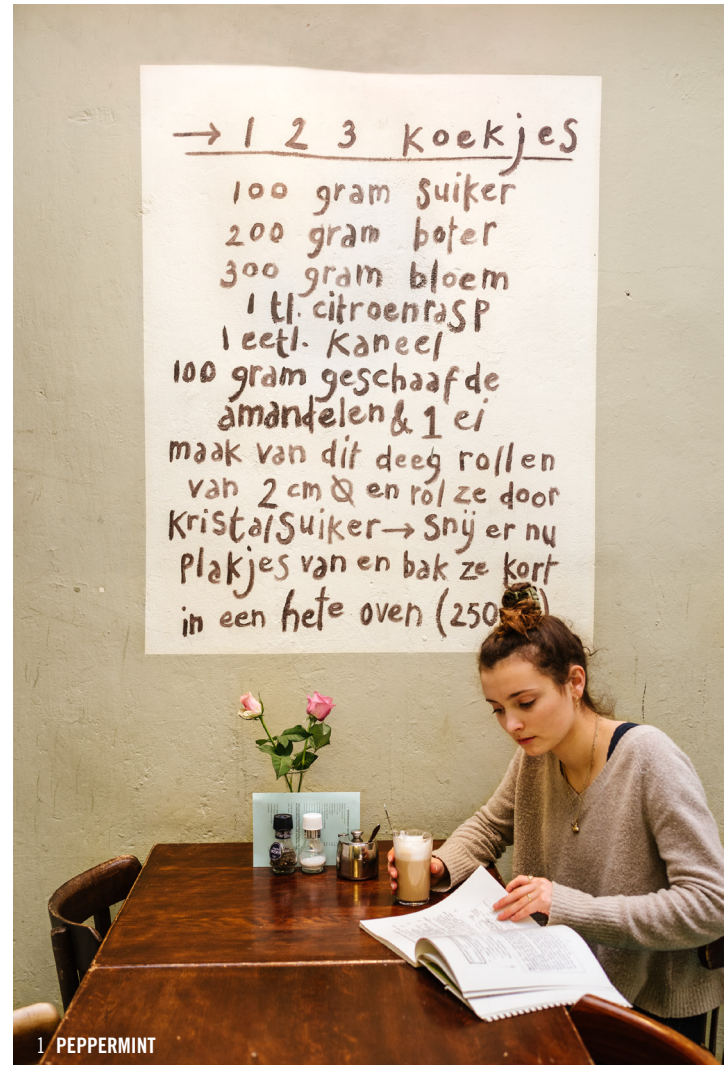 → 1 2 3 koekjes
100 gram suiker
200 gram boter
300 gram bloem
1 tl. citroenrasp
1 eetl. kaneel
100 gram geschaafde
amandelen & 1 ei
maak van dit deeg rollen
van 2 cm Ø en rol ze door
kristalsuiker → snij er nu
plakjes van en bak ze kort
in een hete oven (250
1 PEPPERMINT